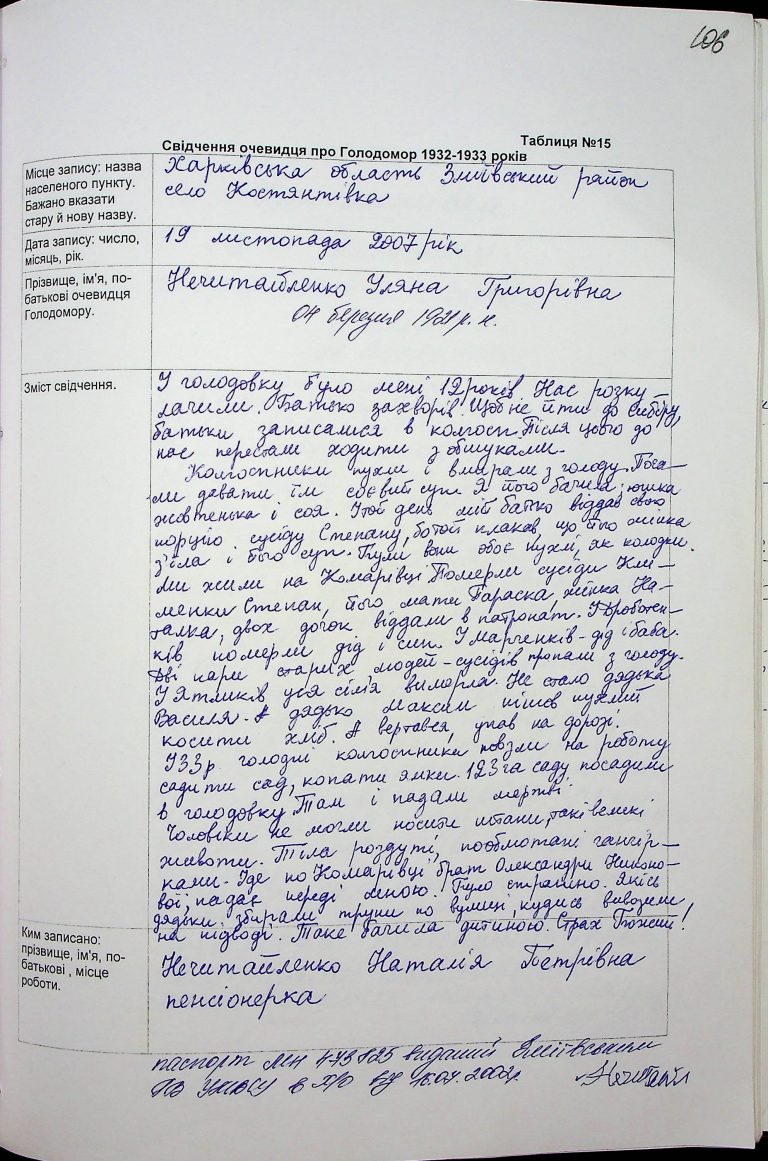 106
Таблиця №15
Свідчення очевидця про Голодомор 1932-1933 років
Місце запису: назва
населеного пункту.
Бажано вказати
стару й нову назву.
Харківська область Зміївський район
село Костянтівка
Дата запису: число,
місяць, рік.
19 листопада 2007 рік
Прізвище, ім'я, по-
батькові очевидця
Голодомору.
Нечитайленко Уляна Григорівна
04 березня 1921 р. н.
Зміст свідчення.
У голодовку було мені 12 років. Нас розку-
лачили. Батько захворів. Щоб не йти до Сибіру,
батьки записалися в колгосп. Після цього до
нас перестали ходити з обшуками.
Колгоспники пухли і вмирали з голоду. Поча-
ли давати їм соєвий суп. Я його бачила: юшка
жовтенька і соя. У той день мій батько віддав свою
порцію сусіду Степану, бо той плакав, що його жінка
з'їла і його суп. Були вони обоє пухлі, як колодки.
Ми жили на Комарівці. Померли сусіди Кли-
менки Степан, його мати Параска, жінка На-
талка, двох дочок віддали в патронат. У Дроботен-
ків померли дід і син. У Марченків - дід і баба.
Дві пари старих людей - сусідів пропали з голоду.
У Ятликів уся сім'я вимерла. Не стало дядька
Василя. А дядько Максим пішов пухлий
косити хліб. А вертався, упав на дорозі.
У 33 р. голодні колгоспники повзли на роботу
садити сад, копати ямки. 123 га саду посадили
в голодовку. Там і падали мертві.
Чоловіки не могли носити штани, такі великі
животи. Тіла роздуті, пообмотані ганчір-
ками. Іде по Комарівці брат Олександри
вої, падає переді мною. Було страшно. Якісь
дядьки збирали трупи по вулиці, кудись вивозили
на підводі. Таке бачила дитиною. Страх Божий!
Ким записано:
прізвище, ім'я, по-
батькові , місце
роботи.
Нечитайленко Наталія Петрівна
пенсіонерка
паспорт МН 473825 виданий Зміївським
РВ УМВСУ в Х/о від 2002р.